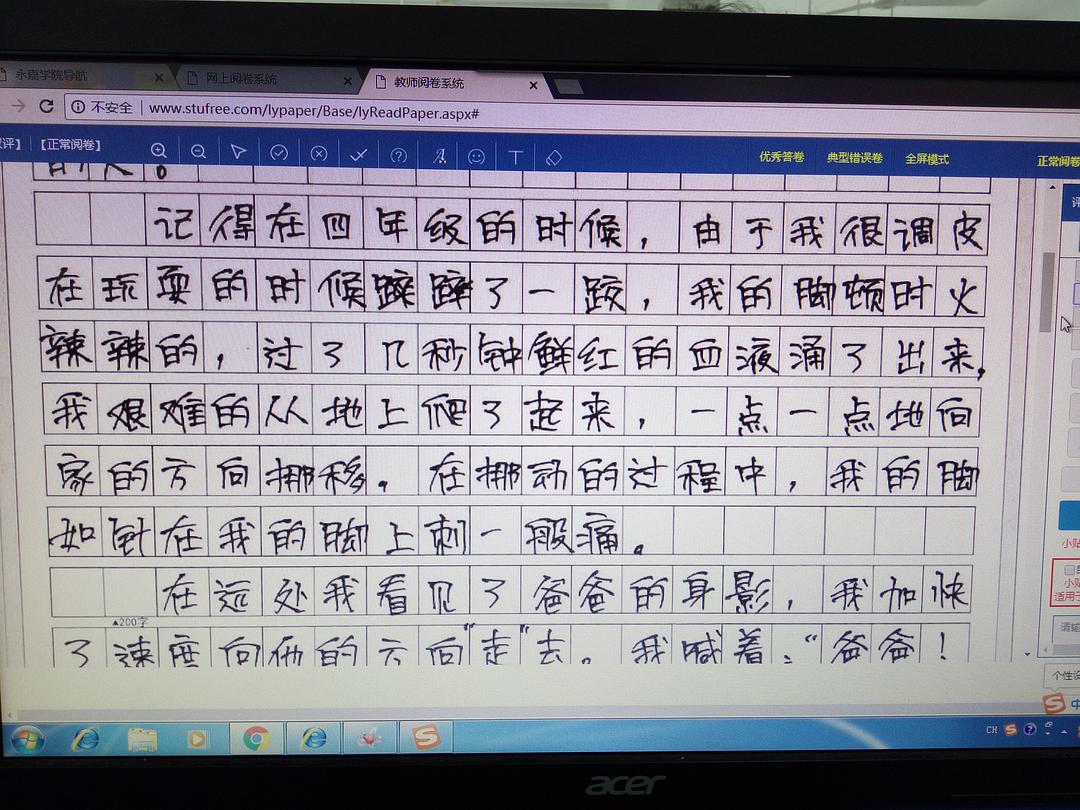 永嘉学院导航
网上阅卷系统
教师阅卷系统
不安全 www.stufree.com/lypaper/Base/lyReadPaper.aspx#
评】 【正常阅卷】
优秀答卷 典型错误卷 全屏模式 正常阅卷
的人。
记得在四年级的时候，由于我很调皮
在玩耍的时候蹂蹂了一跤，我的脚顿时火
辣辣的，过了几秒钟鲜红的血液涌了出来，
我艰难的从地上爬了起来，一点一点地向
家的方向挪移。在挪动的过程中，我的脚
如针在我的脚上刺一般痛。
在远处我看见了爸爸的身影，我加快
▲200字
了速度向他的方向"走"去。我喊着，“爸爸！
小贴
小贴
适用于
请输
个性设
CH
acer